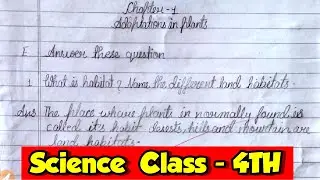 Chapter-1
Adaptations in plants
E Answer these question
1 What is habitat? Name the different land habitats.
Ans. The place where plants in normally found is
called it's habit deserts, hills and mountain are
land habitats.
Science Class - 4TH